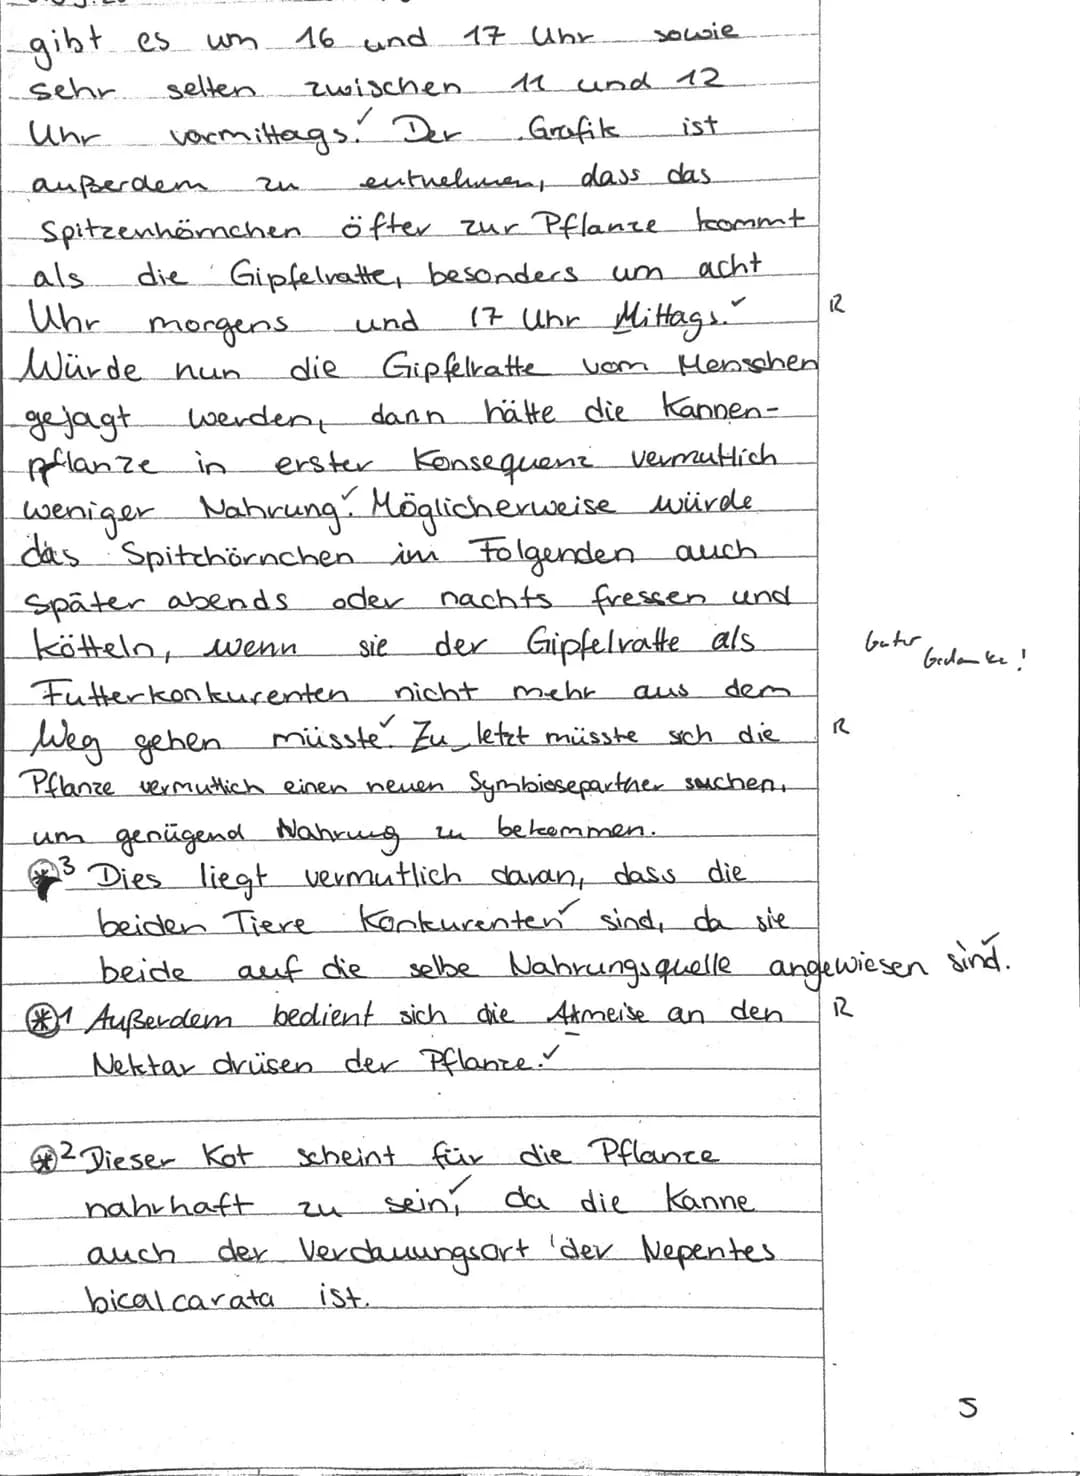 gibt es um 16 und 17 Uhr sowie
sehr selten zwischen 11 und 12
Uhr vormittags. Der Grafik ist
außerdem zu entnehmen, dass das
Spitzenhörnchen öfter zur Pflanze kommt
als die Gipfelratte, besonders um acht
Uhr morgens und 17 Uhr Mittags. R
Würde nun die Gipfelratte vom Menschen
gejagt werden, dann hätte die Kannen-
pflanze in erster Konsequenz vermutlich
weniger Nahrung. Möglicherweise würde
das Spitzhörnchen im Folgenden auch
später abends oder nachts fressen und
kötteln, wenn sie der Gipfelratte als
Guter Gedanke!
Futterkonkurenten nicht mehr aus dem
Weg gehen müsste. Zu letzt müsste sich die R
Pflanze vermutlich einen neuen Symbiosepartner suchen,
um genügend Nahrung zu bekommen.
*3 Dies liegt vermutlich daran, dass die
beiden Tiere Konkurenten sind, da sie
beide auf die selbe Nahrungsquelle angewiesen sind.
*1 Außerdem bedient sich die Ameise an den R
Nektar drüsen der Pflanze.
*2 Dieser Kot scheint für die Pflanze
nahrhaft zu sein, da die Kanne
auch der Verdauungsort der Nepentes
bicalcarata ist.
5